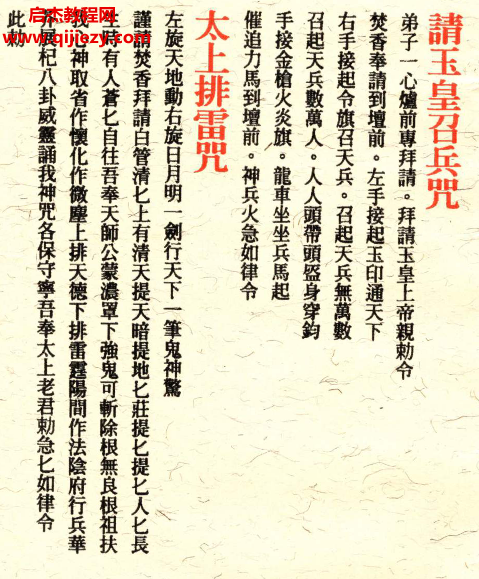 請玉皇召兵咒
弟子一心爐前專拜請。拜請玉皇上帝親勅令
焚香奉請到壇前。左手接起玉印通天下
右手接起令旗召天兵。召起天兵無萬數
召起天兵數萬人。人人頭帶頭盔身穿鈎
手接金槍火炎旗。龍車坐坐兵馬起
催追力馬到壇前。神兵火急如律令
太上排雷咒
左旋天地動右旋日月明一劍行天下一筆鬼神驚
謹請焚香拜請白管清匕上有清天提天暗提地匕莊提匕提匕人匕長
生時有人蒼匕自往吾奉天師公蒙濃罩下強鬼可斬除根無良根祖扶
我心神取省作懷化作微塵上排天德下排雷霆陽間作法陰府行兵華
界展杞八卦威靈誦我神咒各保守寧吾奉太上老君勅急匕如律令
此勅
启杰教程网
www.qijiezy.com